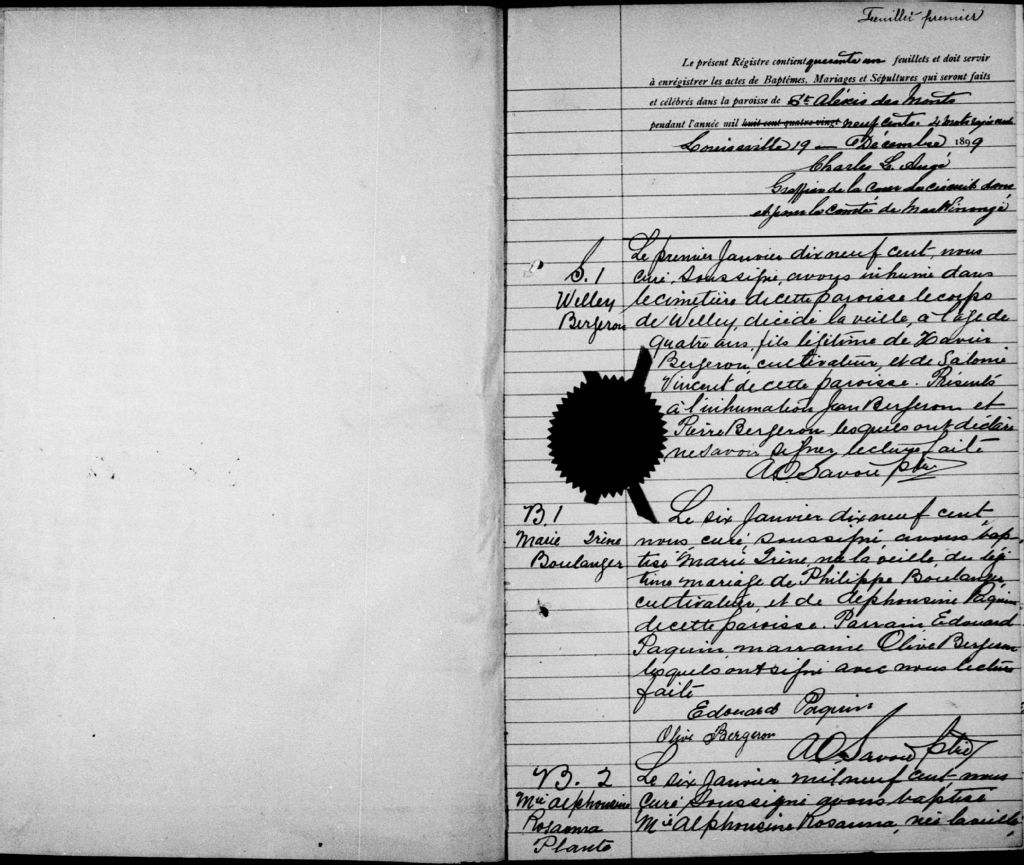 Feuillet premier
Le présent Régistre contient quarante un feuillets et doit servir
à enrégistrer les actes de Baptêmes, Mariages et Sépultures qui seront faits
et célébrés dans la paroisse de St Alexis des Monts
pendant l'année mil huit cent quatre-vingt neuf cents.
Louiseville 19 Décembre 1899
Charles L. Augé
Greffier de la Cour de circuit dans
et pour le comté de Maskinongé
S. 1
Welley
Bergeron
Le premier Janvier dix neuf cent, nous
curé, soussigné, avons inhumé dans
le cimetière de cette paroisse le corps
de Welley, décédé la veille, à l'age de
quatre ans, fils légitime de Xavier
Bergeron, cultivateur, et de Salomé
Vincent de cette paroisse. Présents
à l'inhumation Jean Bergeron et
Pierre Bergeron lesquels ont déclaré
ne savoir signer, lecture faite
A.O. Savoie ptre
B. 1
Marie Irène
Boulanger
Le six Janvier dix neuf cent,
nous curé soussigné avons bap-
tisé Marie Irène, née la veille, du légi
time mariage de Philippe Boulanger,
cultivateur, et de Alphonsine Paquin
de cette paroisse. Parrain Edouard
Paquin marraine Olive Bergeron
lesquels ont signé avec nous lecture
faite
Edouard Paquin
Olive Bergeron
A.O. Savoie ptre
B. 2
Mie Alphonsine
Rosanna
Plante
Le six Janvier mil neuf cent nous
curé soussigné avons baptisé
Mie Alphonsine Rosanna, née la veille,